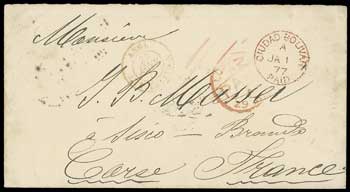 Monsieur
CIUDAD BOLIVAR
A
JA 1
77
PAID
J. B. Massei
à Sisco – Brando
Corse France